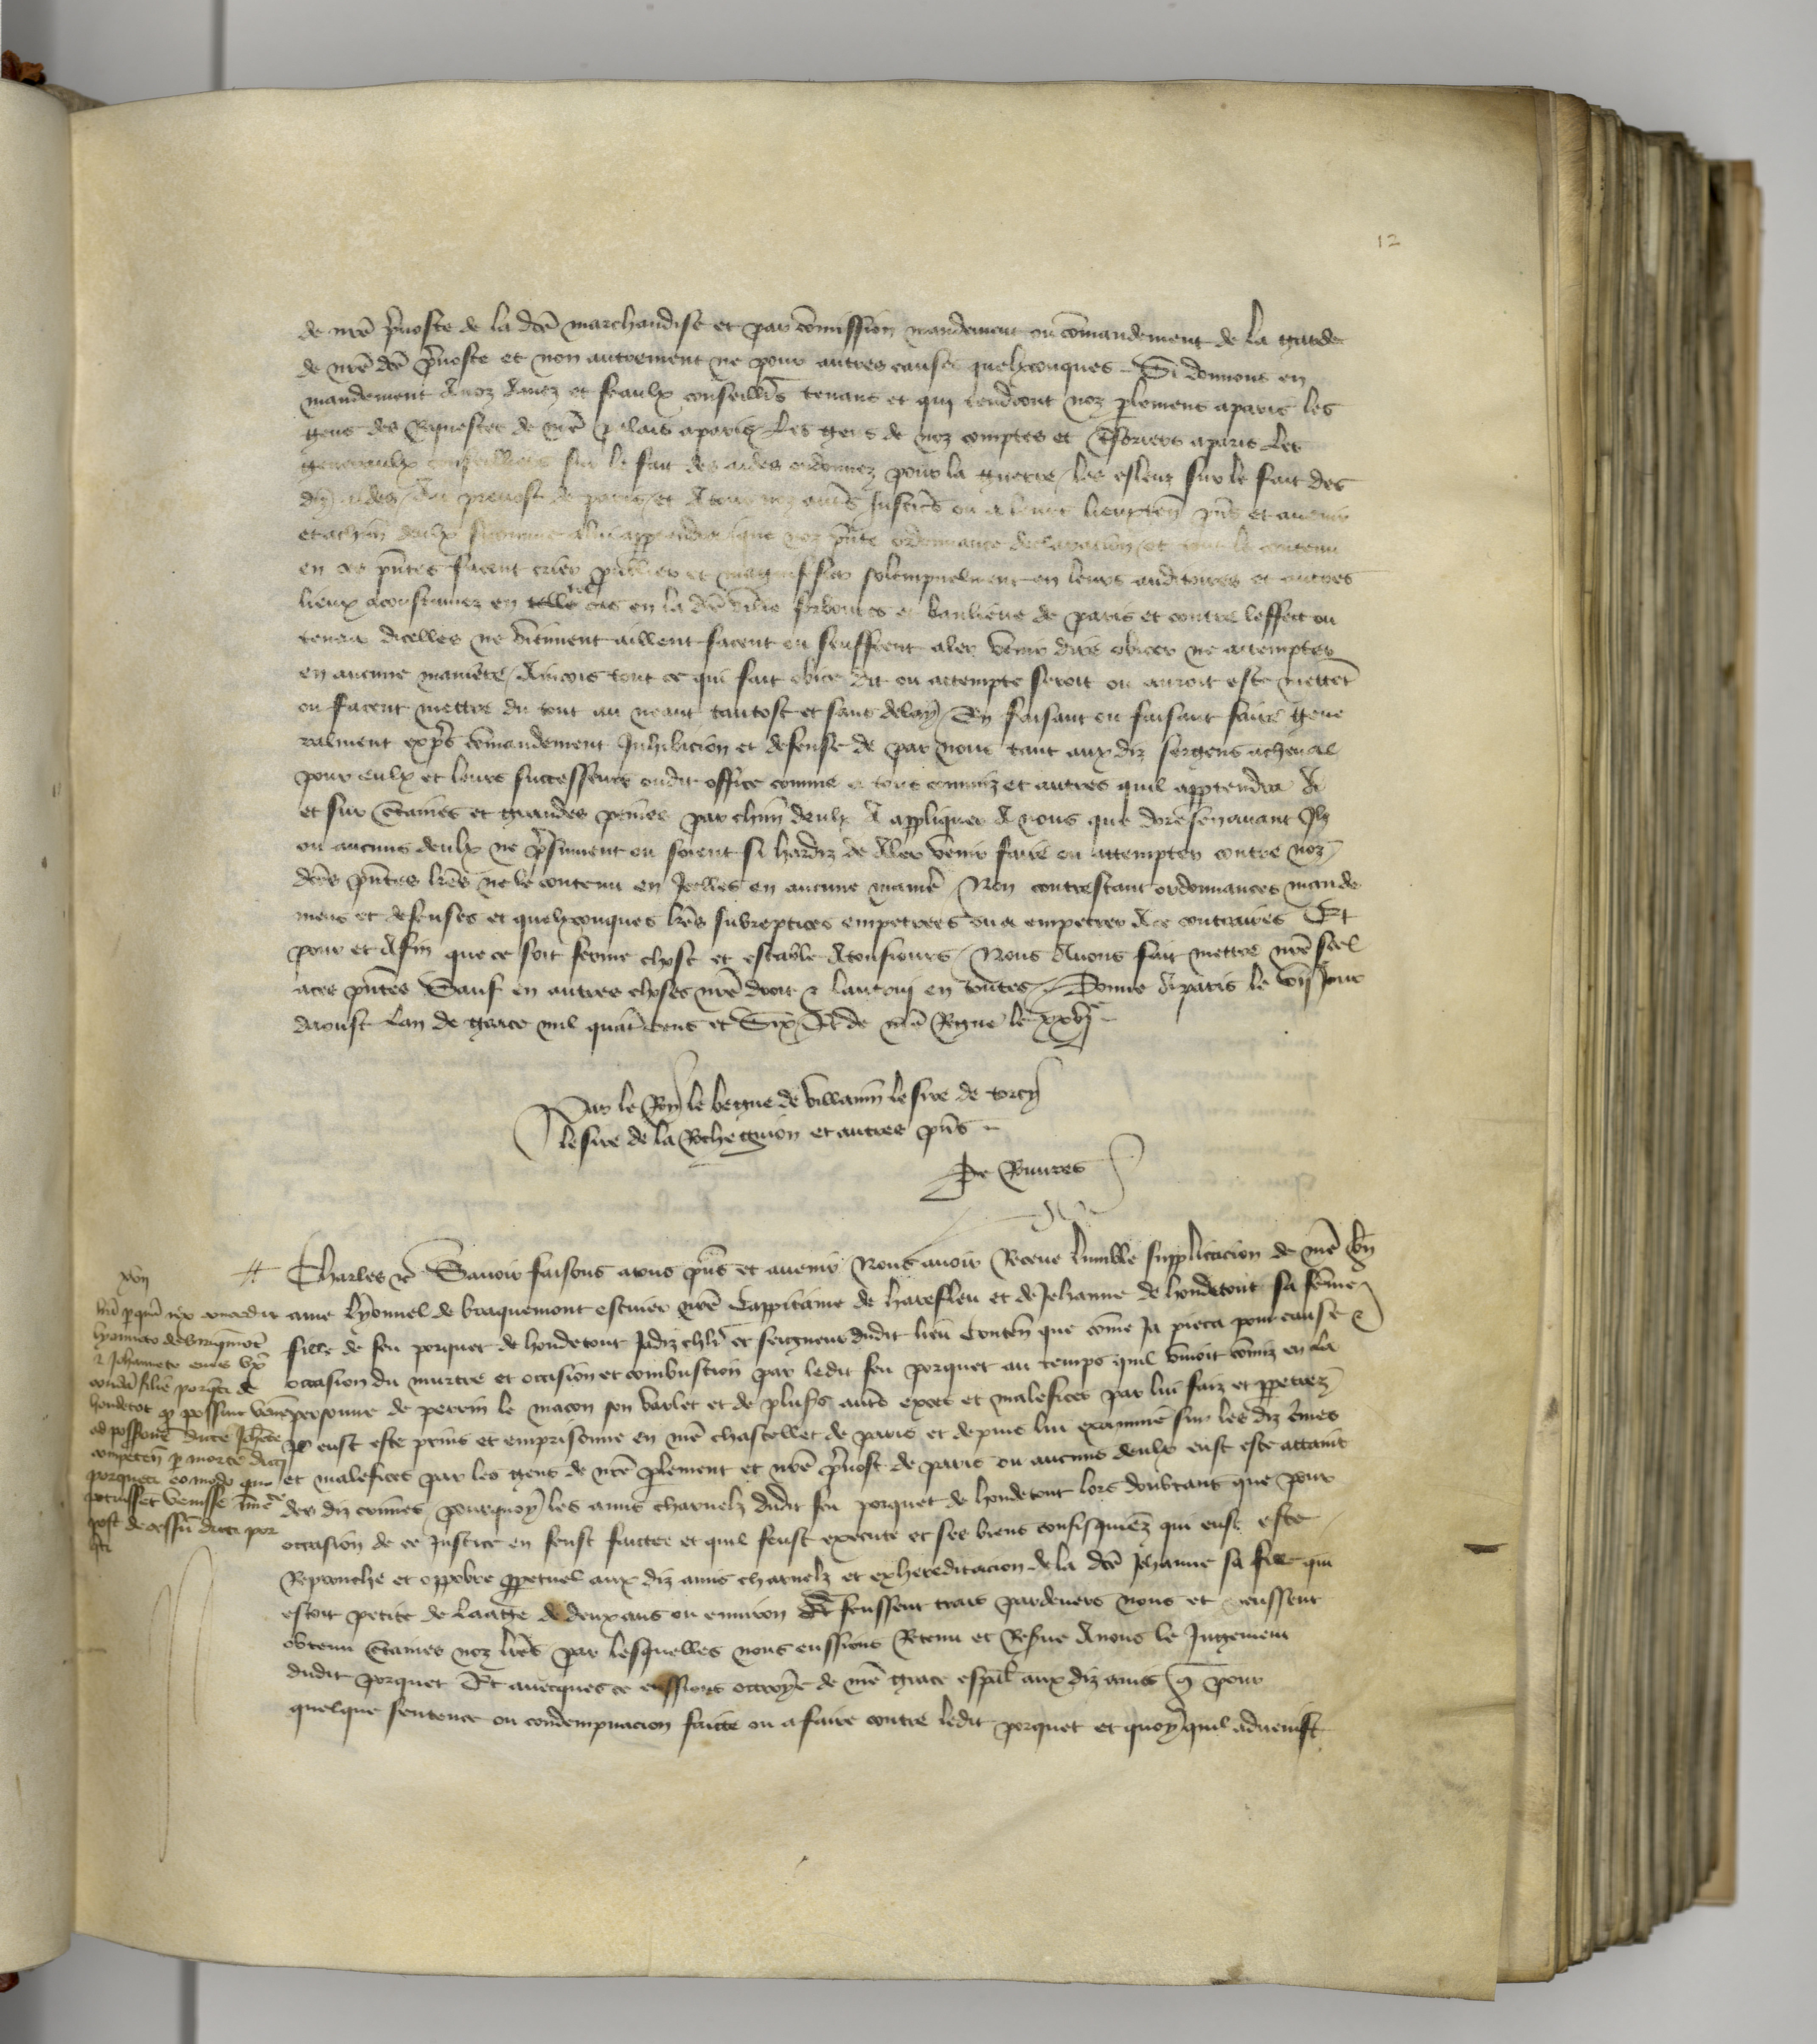 12
de nrē p̄uoste de la dcē marchandise et par cōmission mandement ou cōmandement de la garde
de nrē dcē p̄uoste et non autrement ne pour autres causes quelxconques Si donnons en
mandement A noz Amez et feaulx conseillr̄s tenans et qui tendront noz plemens a paris les
gens des Requestes de nrē palais a paris Les gens de noz comptes et Tresoriers a paris Les
generaulx conseilliers sur le fait des aides ordonnez pour la guerre / les esleuz sur le fait des
diz aides / Au preuost de paris et A tous noz autr̄s Justicr̄s ou a leurs lieuxten̄ pn̄s et auenir
et a chūn deulx si comme a lui appartendra que noz pn̄te ordonnance declaracion et tout le contenu
en ces pn̄tes facent crier publier et magnifester solempnelment en leurs auditoires et autres
lieux acoustumez en telle tel cas en la dcē ville forbours et banlieue de paris et contre leffect ou
teneur dicelles ne viennent aillent facent ou seuffrent aler venir dire obicer ne attempter
en aucune maniere / Aincois tout ce qui fait obice dit ou attempte seroit ou auroit este mettent
ou facent mettre du tout au neant tantost et sans delay / En faisant ou faisant faire gene
ralment exp̄s cōmandement Inhibicion et defense de par nous tant aux diz sergens a cheual
pour eulx et leurs successeurs oudit office comme a tous commiz et autres quil apptendra A
et sur c̄taines et grandes peines par chūn deulx A appliquer A nous que doresenauant Ilz
ou aucuns deulx ne p̄sument ou soient si hardiz de Aler venir faire ou attempter contre noz
dcēs pn̄tes lrēs ne le contenu en Icelles en aucune manr̄e / Non contrestant ordonnances mande
mens et defenses et quelxconques lrēs subreptices empetrees ou a empetrer A ce contraires Et
pour et Afin que ce soit ferme chose et estable A tousiours / Nous Auons fait mettre nrē seel
a ces pn̄tes Sauf en autres choses nrē droit z lautrui en toutes / Donne A paris le vij Jour
daoust Lan de grace mil quatrecens et Six Et de nrē Regne le xxvj e
Par le Roy le begue de villainn̄ le sire de torcy
le sire de la Rocheguion et autres pn̄s
De Rouures
xvij
Charles zc̄ Sauoir faisons a tous pn̄s et auenir Nous auoir Receue lumble supplicacion de nrē bn̄
ame Lyonnel de braquemont escuier nrē Cappitaine de harefleu et de Jehanne de hondetout sa fēme
fille de feu porquet de hondetout Jadiz chlr̄ et seigneur dudit lieu Conten̄ que cōme Ja pieca pour cause z
occasion du murtre et occision et combustion par ledit feu porquet au temps quil viuoit cōmiz en la
personne de perrin le macon son varlet et de plusrs̄ autr̄s exces et malefices par lui faiz et ppetrez
Il eust este prins et emprisonne en nrē chastellet de paris et depuis lui examine sur les diz crimes
et malefices par les gens de nrē plement et nrē p̄uost de paris ou aucuns deulx eust este attaint
des diz crimes / pourquoy les amis charnelz dudit feu porquet de hondetout lors doubtans que pour
occasion de ce Justice en feust faitte et quil feust execute et ses biens confisquiez qui eust este
Reprouche et oppobre ppetuel aux diz amis charnelz et exhereditacion de la dcē Jehanne sa fille qui
estoit petite de laage de deux ans ou enuiron Et feussent traiz pardeuers nous et eussent
obtenu c̄taines noz lrēs par lesquelles nous eussions Retenu et Res̄ue A nous le Jugement
dudit porquet Et auecques ce eussions octroye de nrē grace esp̄al aux diz amis q̄ pour
quelque sentence ou condempnacion faicte ou a faire contre ledit porquet et quoy quil aduenist
lrā p quā rex concedit
lyoneto de braquemot̄
z Johannete eius vx̄
condā filie porqt̄i de
hondetot q̄ possint venire
ad possionē dictē Johēte
competen̄ p mortē dicti
porqueti eo modo quo
potuisset venisse
post decessū dicti por
qti